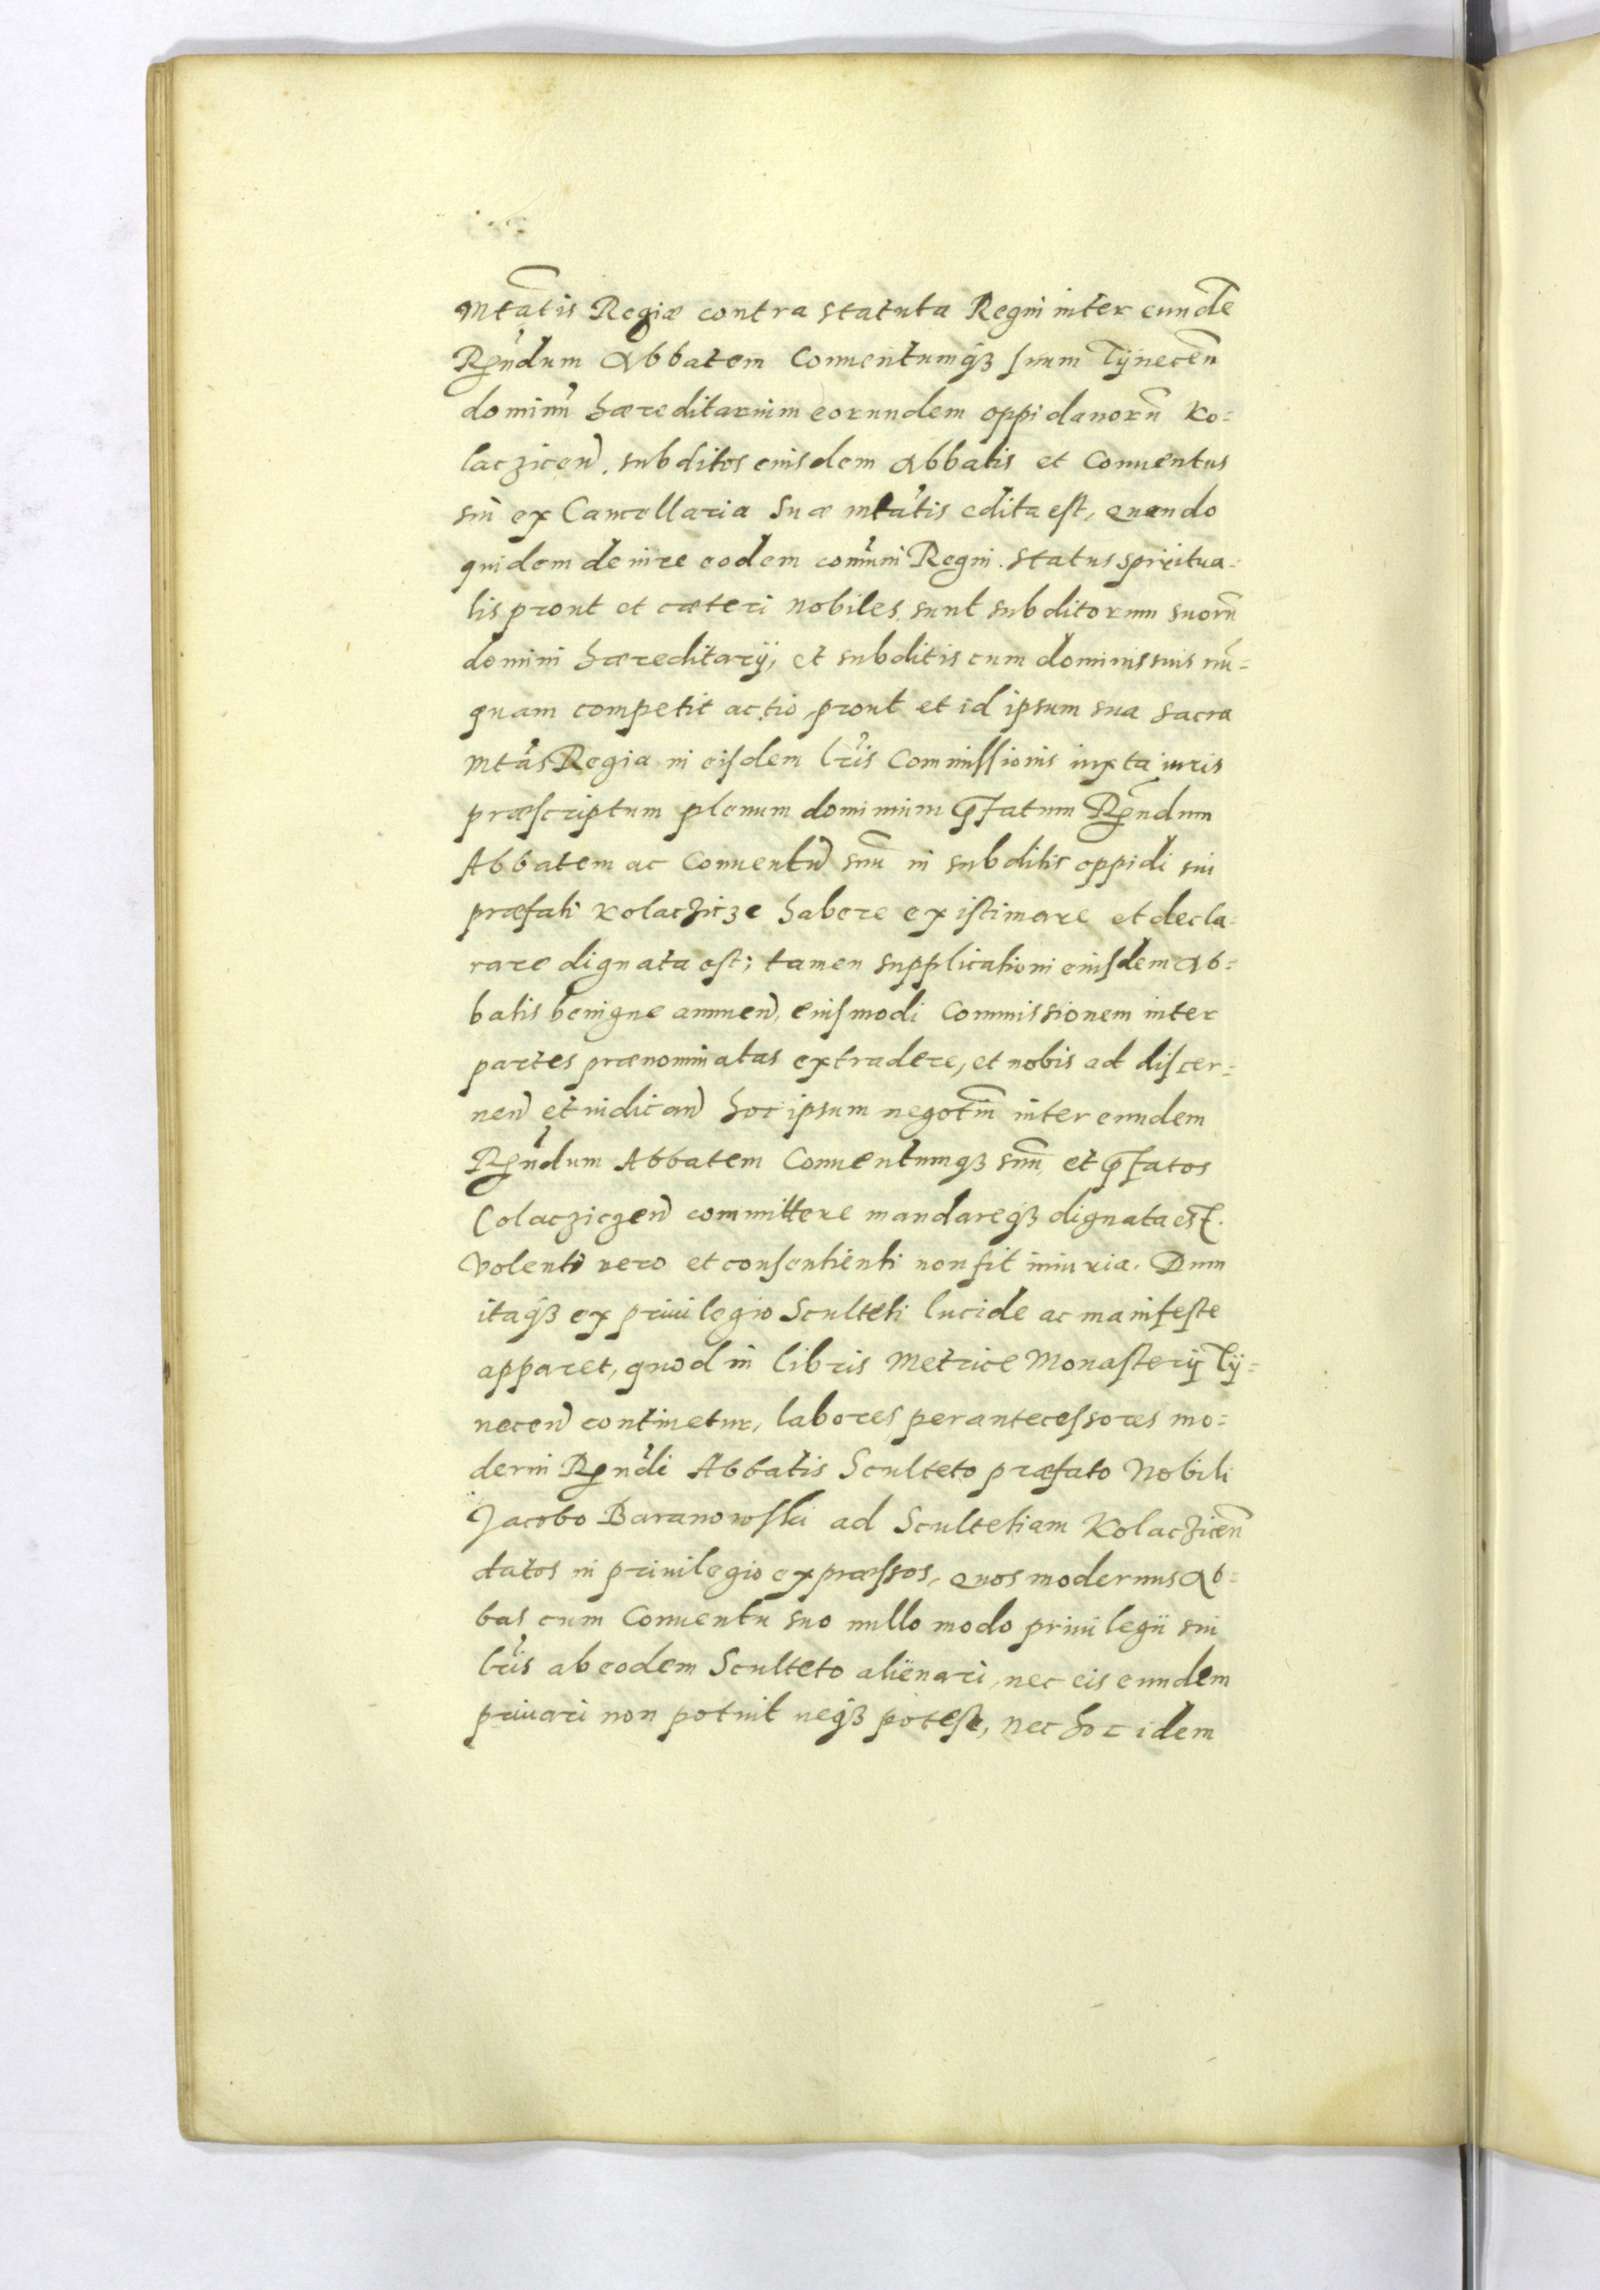 Mtatis Regiæ contra statuta Regni inter eunde
Rṇdum Abbatem Conuentumq3 suum Tÿnecen
dominū hæreditarium eorundem oppidanorū Ko=
laczicen. subditos eiusdem Abbatis et Conuentus
sui ex Cancellaria Suæ mtatis edita est, quando
quidem de iure eodem comuni Regni. Status spiritua=
lis prout et cæteri Nobiles, sunt subditorum suorū
domini hæreditarÿ, et subditis cum dominis suis nū=
quam competit actio, prout et id ipsum sua sacra
Mtas Regia in eisdem lris Commissionis iuxta iuris
præscriptum plenum dominium pfatum Rndum
Abbatem ac Conuentū suū in subditis oppidi sui
præfati Kolaczicze habere existimare et decla=
rare dignata est; tamen supplicationi eiusdem Ab=
batis benigne annuen, eiusmodi Commissionem inter
partes prænominatas extradere, et nobis ad discer=
nen et iudican hoc ipsum negotiū inter eundem
Rndum Abbatem Conuentumq3 suū, et pfatos
Colacziczen committere mandareq3 dignata est.
Volenti vero et consentienti non fit iniuria. Dum
itaq3 ex priuilegio Sculteti lucide ac manifeste
apparet, quod in libris Metrice Monasterÿ Tÿ=
necen continetur, labores per antecessores mo=
derni Rndi Abbatis Sculteto præfato Nobili
Jacobo Baranowski ad Scultetiam Kolaczicen
datos in priuilegio expræssos, quos modernus Ab=
bas cum Conuentu suo nullo modo priuilegii sui
lris ab eodem Sculteto aliënari, nec eis eundem
priuari non potuit neq3 potest, nec hoc idem